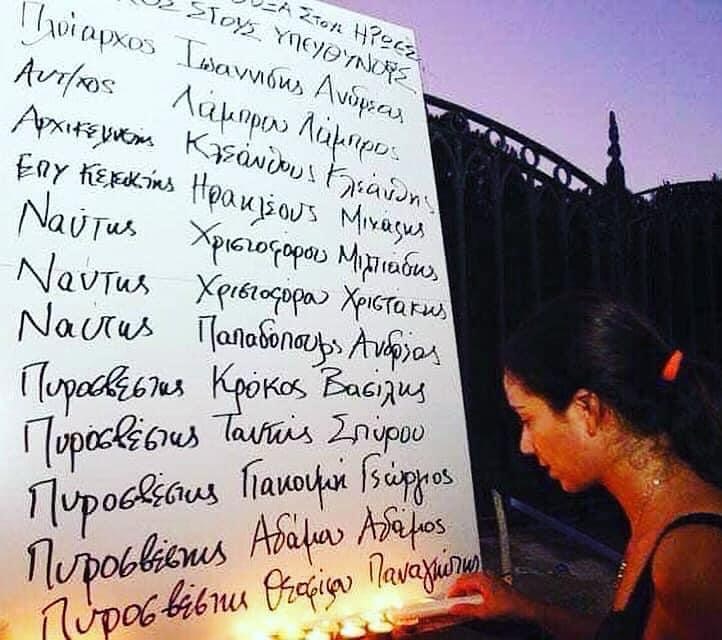 ΔΟΞΑ ΣΤΟΥΣ ΗΡΩΕΣ
ΣΤΟΥΣ ΥΠΕΥΘΥΝΟΥΣ
Πλοίαρχος Ιωαννίδης Ανδρέας
Αντ/χος Λάμπρου Λάμπρος
Αρχικελευστής Κλεάνθους Κλεάνθης
ΕΠΥ Κελευστής Ηρακλέους Μιχάλης
Ναύτης Χριστοφόρου Μιλτιάδης
Ναύτης Χριστοφόρου Χριστάκης
Ναύτης Παπαδόπουλος Ανδρέας
Πυροσβέστης Κρόκος Βασίλης
Πυροσβέστης Ταντής Σπύρου
Πυροσβέστης Γιακουμή Γεώργιος
Πυροσβέστης Αδάμου Αδάμος
Πυροσβέστης Θεοφίλου Παναγιώτης